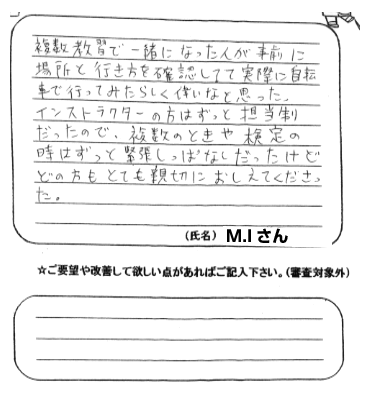 複数教習で一緒になった人が事前に
場所と行き方を確認してて実際に自転
車で行ってみたらしく偉いなと思った。
インストラクターの方はずっと担当制
だったので、複数のときや検定の
時はずっと緊張しっぱなしだったけど
どの方もとても親切におしえてくださっ
た。
(氏名) M.Iさん
☆ご要望や改善して欲しい点があればご記入下さい。(審査対象外)